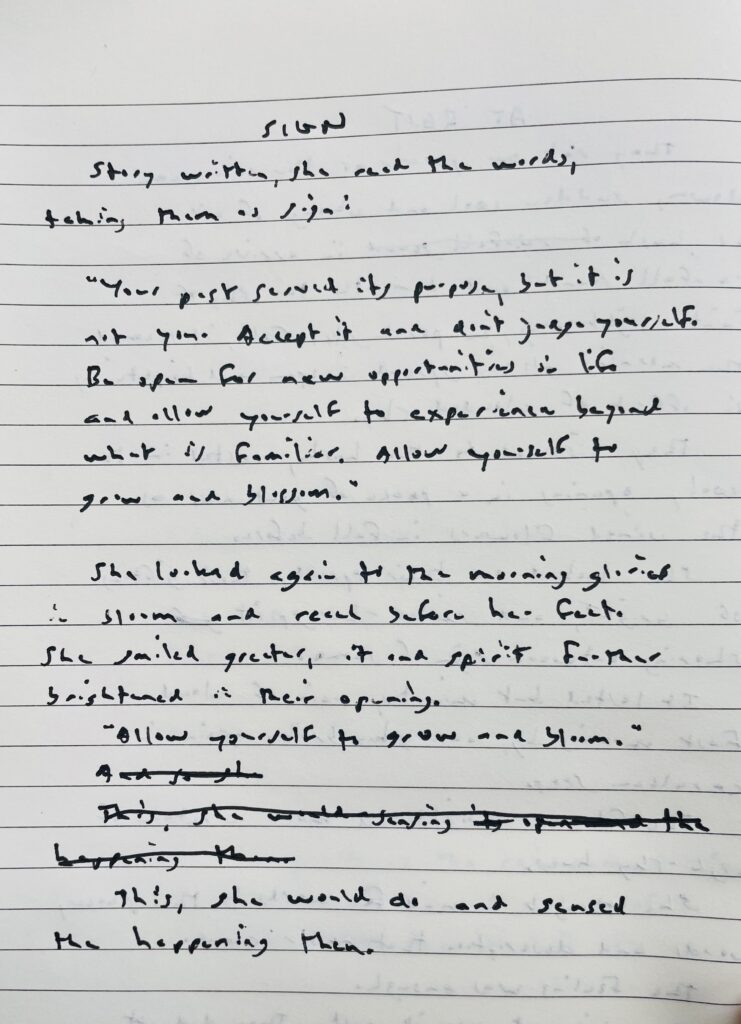 SIGN
Story written, she read the words,
taking them as sign:
"Your past served its purpose, but it is
not you. Accept it and don't judge yourself.
Be open for new opportunities in life
and allow yourself to experience beyond
what is familiar. Allow yourself to
grow and blossom."
She looked again to the morning glories
in bloom and reach before her feet.
She smiled greater, it and spirit further
brightened in their opening.
"Allow yourself to grow and bloom."
And so she
This, she would sensing its open and the
happening then
This, she would do and sensed
the happening then.